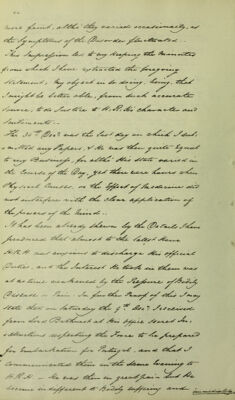 were faint, altho' they varied occasionally, as
the Symptoms of the Disorder fluctuated.
This Impression led to my keeping the Minutes
from which I have extracted the foregoing
Statement, My object in so doing being, that
I might be better able, from such accurate
source, to do Justice to H.R.H's character and
Sentiments.
The 30th Decr was the last day on which I sub-
mitted any Papers, & He was then quite equal
to any Business, for altho' His state varied in
the Course of the Day, yet there were hours when
Physical Causes, or the Effect of Medicine did
not interfere with the clear application of
the powers of the Mind.
It has been already shewn by the Details I have
produced that almost to the latest Hour
H.R.H. was anxious to discharge His official
Duties, and the Interest He took in them was
at no time weakened by the Pressure of Bodily
Disease or Pain. In further Proof of this I may
state that on Saturday the 9th Decr I received
from Lord Bathurst at His office Secret In-
structions respecting the Force to be prepared
for Embarkation for Portugal, and that I
communicated them in the same Evening to
H.R.H. He was then in great pain but He
became indifferent to Bodily suffering and